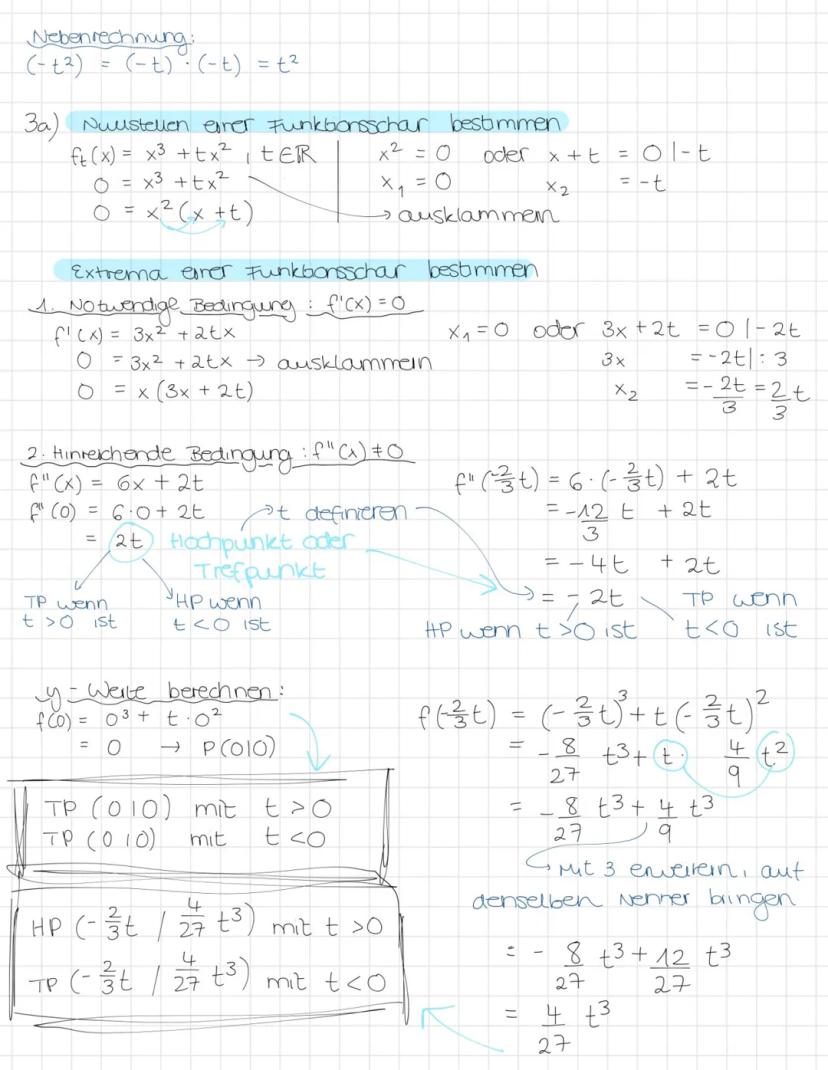 Nebenrechnung:
(-t²) = (-t) · (-t) = t²
3a) Nullstellen einer Funktionsschar bestimmen
fₜ(x) = x³ + tx² , t ∈ ℝ
0 = x³ + tx²
0 = x² (x + t)
x² = 0 oder x + t = 0 | - t
x₁ = 0 x₂ = -t
→ ausklammern
Extrema einer Funktionsschar bestimmen
1. Notwendige Bedingung : f'(x) = 0
f'(x) = 3x² + 2tx
0 = 3x² + 2tx → ausklammern
0 = x (3x + 2t)
x₁ = 0 oder 3x + 2t = 0 | - 2t
3x = -2t | : 3
x₂ = - 2t/3 = 2/3 t
2. Hinreichende Bedingung : f''(x) ≠ 0
f''(x) = 6x + 2t
f''(0) = 6·0 + 2t
= 2t
t definieren
Hochpunkt oder
Trefpunkt
TP wenn
t > 0 ist
HP wenn
t < 0 ist
f''(-2/3 t) = 6 · (-2/3 t) + 2t
= -12/3 t + 2t
= - 4t + 2t
= - 2t
HP wenn t > 0 ist
TP wenn
t < 0 ist
y - Werte berechnen:
f(0) = 0³ + t · 0²
= 0 → P(0|0)
TP (0|0) mit t > 0
TP (0|0) mit t < 0
HP (-2/3 t / 4/27 t³) mit t > 0
TP (-2/3 t / 4/27 t³) mit t < 0
f(-2/3 t) = (-2/3 t)³ + t (-2/3 t)²
= - 8/27 t³ + t · 4/9 t²
= - 8/27 t³ + 4/9 t³
→ Mit 3 erweitern, auf
denselben Nenner bringen
= - 8/27 t³ + 12/27 t³
= 4/27 t³